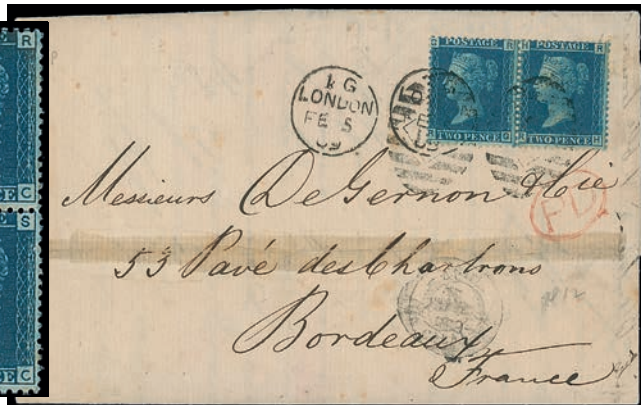 R
C
S
C
G POSTAGE R
R TWO PENCE G
H POSTAGE R
R TWO PENCE H
LONDON
FE 5
69
PD
Messieurs De Gernon & Cie
53 Pavé des Chartrons
Bordeaux
France